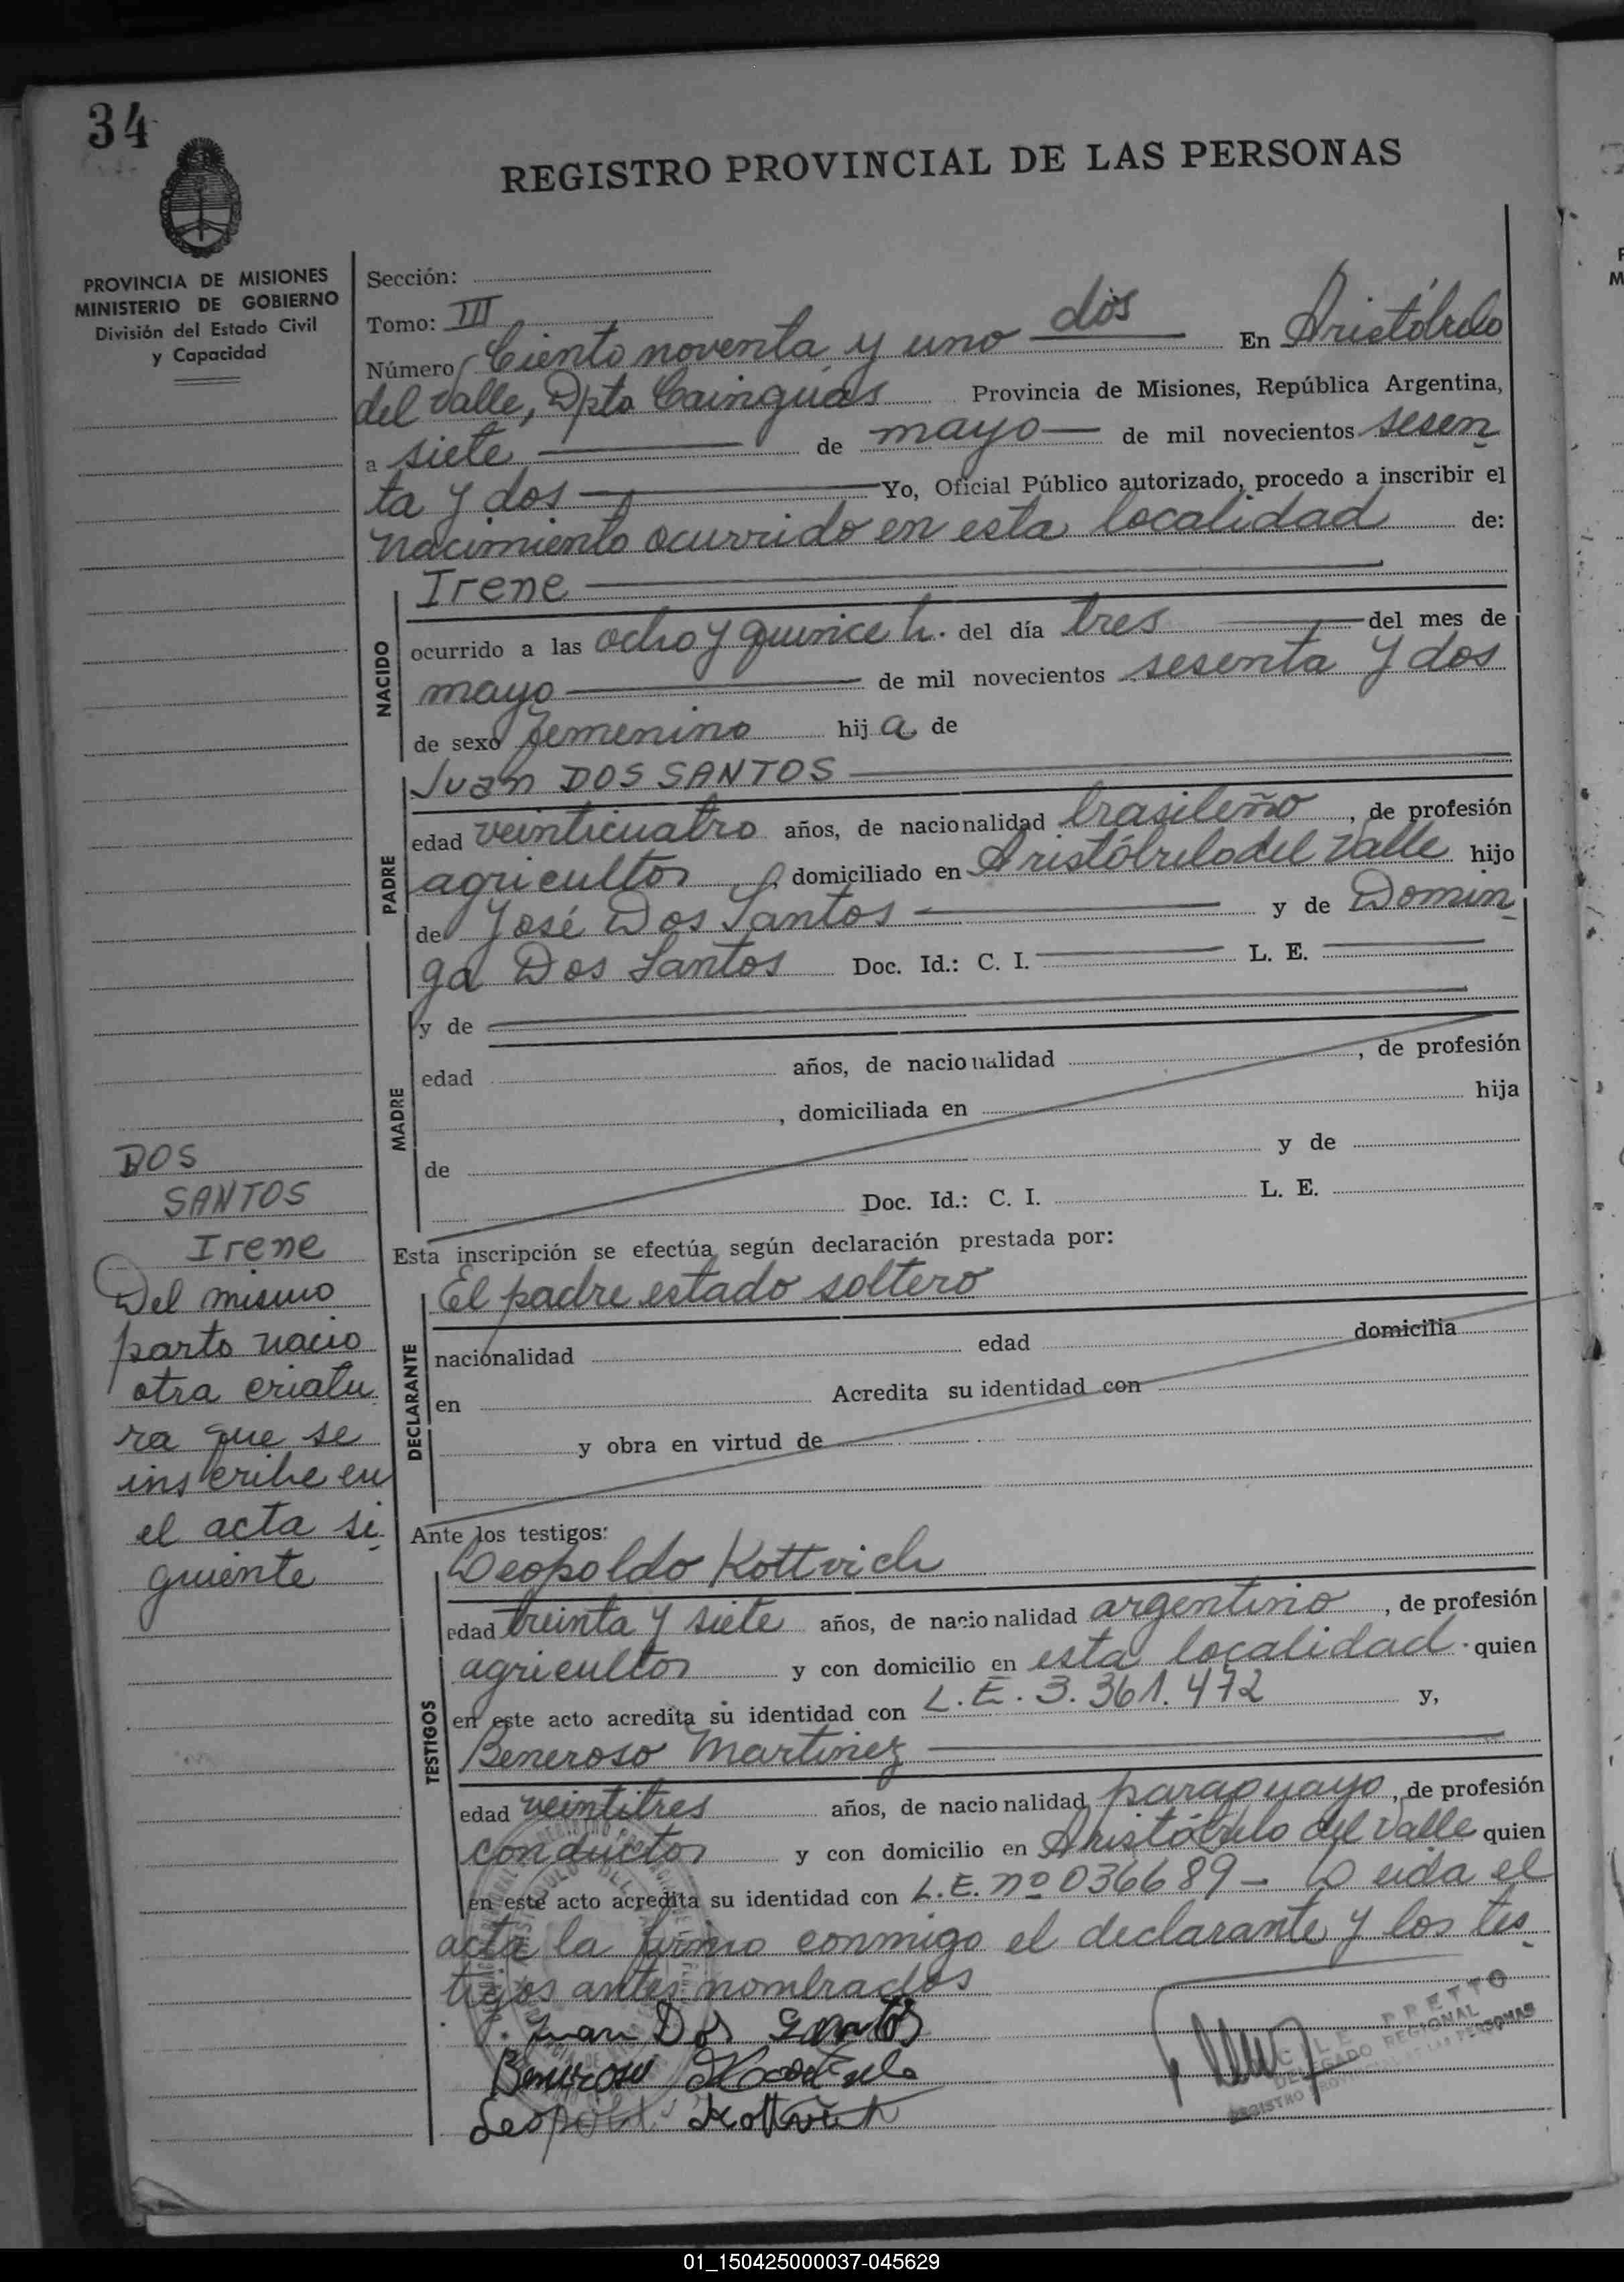 34
REGISTRO PROVINCIAL DE LAS PERSONAS
PROVINCIA DE MISIONES
MINISTERIO DE GOBIERNO
División del Estado Civil
y Capacidad
Sección:
Tomo: III
dos
Número Ciento noventa y uno En Aristóbulo
del Valle, Dpto Cainguás Provincia de Misiones, República Argentina,
a siete de mayo de mil novecientos sesen
ta y dos Yo, Oficial Público autorizado, procedo a inscribir el
nacimiento ocurrido en esta localidad de:
NACIDO
Irene
ocurrido a las ocho y quince h. del día tres del mes de
mayo de mil novecientos sesenta y dos
de sexo femenino hij a de
PADRE
Juan DOS SANTOS
edad veinticuatro años, de nacionalidad brasileño, de profesión
agricultor, domiciliado en Aristóbulo del Valle hijo
de José Dos Santos y de Domin
ga Dos Santos Doc. Id.: C. I. L. E.
MADRE
y de
edad años, de nacionalidad , de profesión
, domiciliada en hija
de y de
Doc. Id.: C. I. L. E.
Esta inscripción se efectúa según declaración prestada por:
DECLARANTE
El padre estado soltero
nacionalidad edad domicilia
en Acredita su identidad con
y obra en virtud de
Ante los testigos:
TESTIGOS
Leopoldo Kottvich
edad treinta y siete años, de nacionalidad argentino, de profesión
agricultor y con domicilio en esta localidad quien
en este acto acredita su identidad con L.E. 3.361.472 y,
Beneroso Martinez
edad veintitres años, de nacionalidad paraguayo, de profesión
conductor y con domicilio en Aristóbulo del Valle quien
en este acto acredita su identidad con L.E. nº 036689 - Leida el
acta la firma conmigo el declarante y los tes
tigos antes nombrados
Juan Dos Santos
Beneroso
Leopoldo Kottvich
PRETTO
DELEGADO REGIONAL
REGISTRO PROVINCIAL DE LAS PERSONAS
DOS
SANTOS
Irene
Del mismo
parto nacio
otra criatu
ra que se
inscribe en
el acta si
guiente
01_150425000037-045629